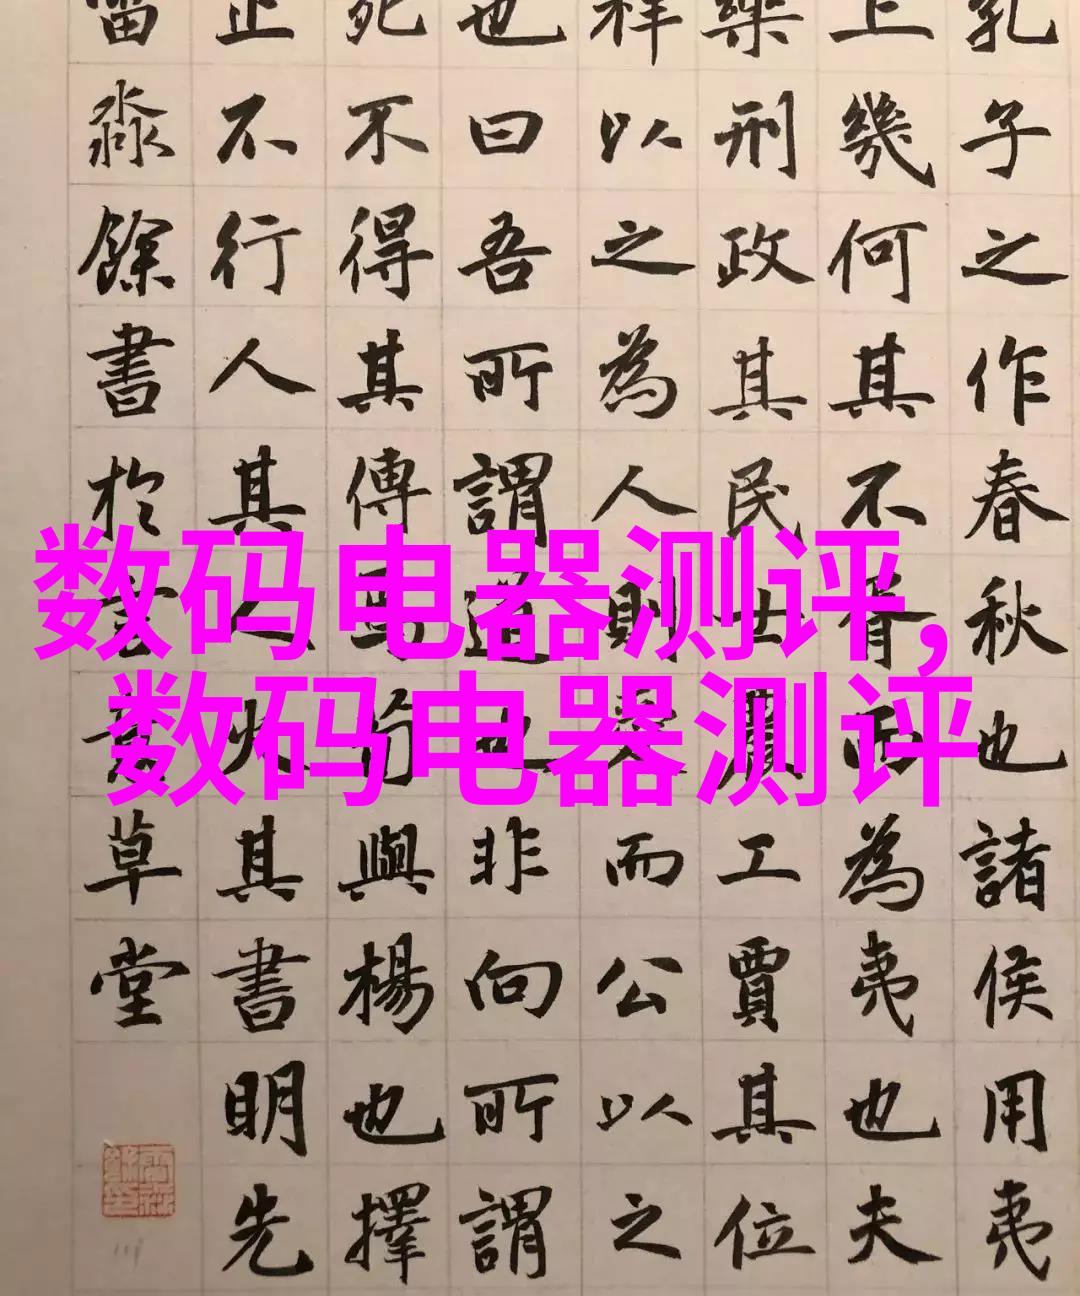 数码电器测评,
数码电器测评
孔子之作春秋也諸侯用夷
上幾何其不胥而為夷也夫
樂刑政其民士農工賈其位
祥以之為人則愛而公以之
也曰吾所謂道也非向所謂
死不得其傳焉荀與楊也擇
止不行人其人火其書明先
淼餘書於草堂